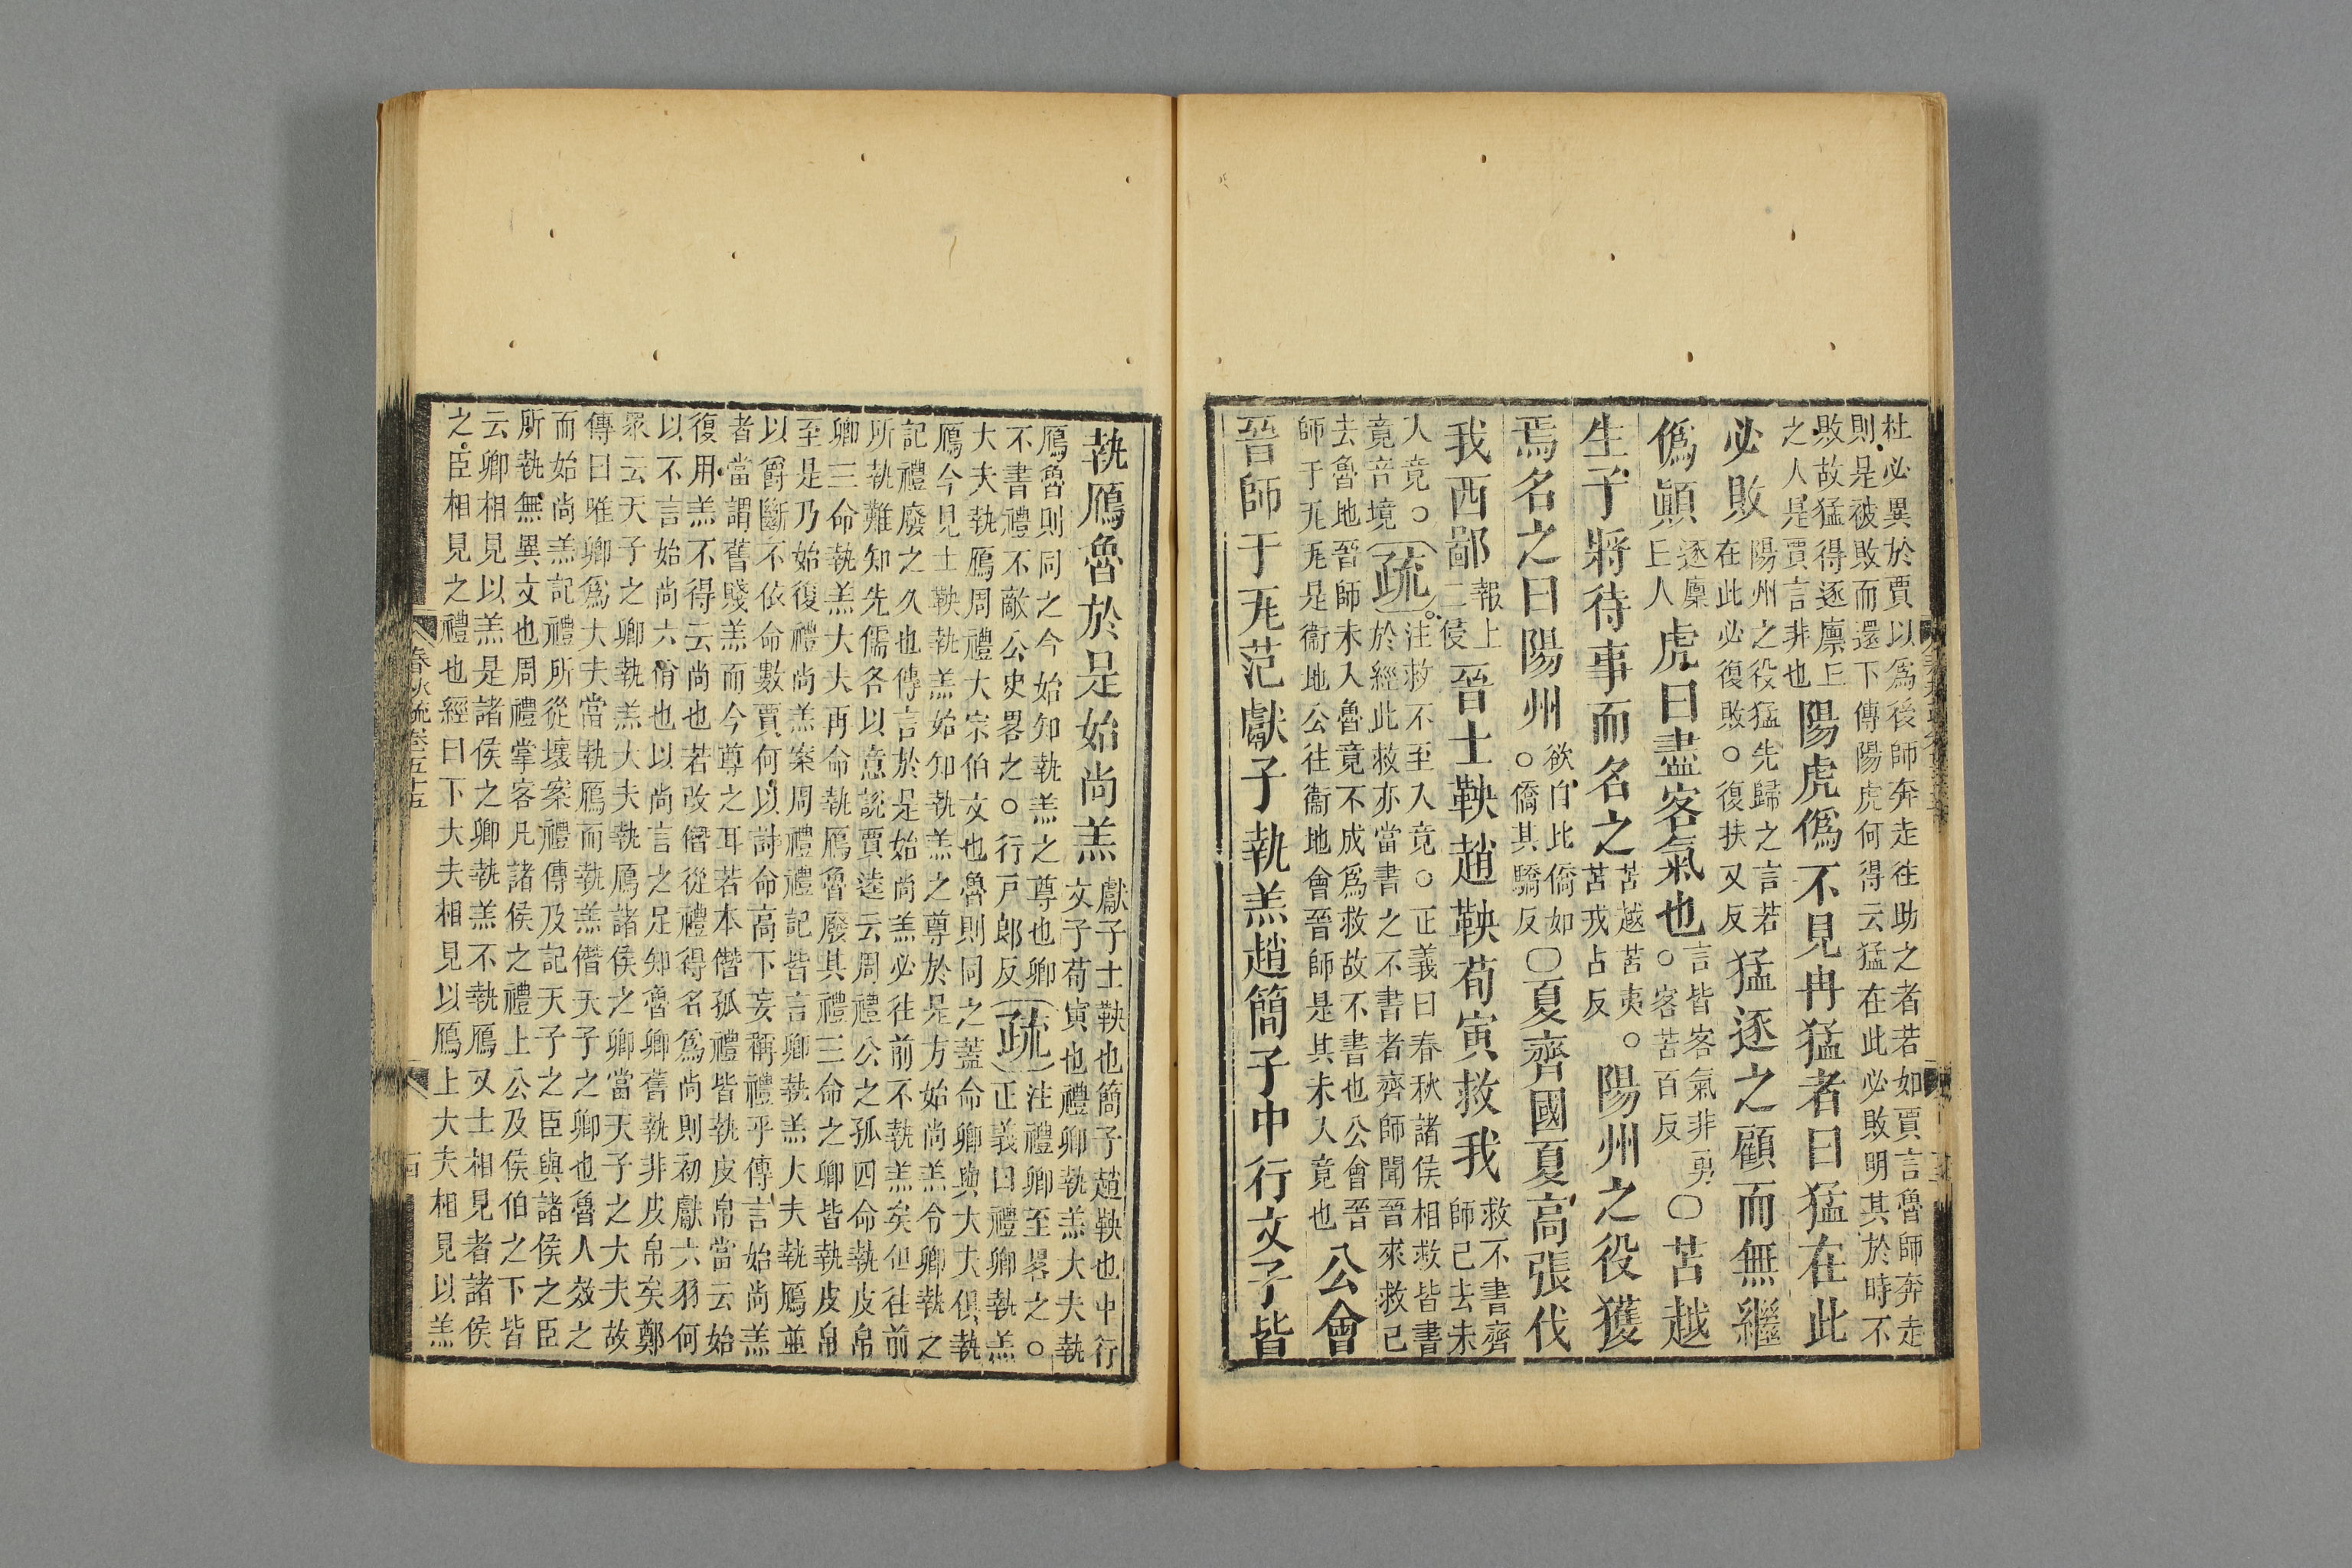 杜必異於賈以爲後師奔走往助之者若如賈言魯師奔走
則是被敗而還下傳陽虎何得云猛在此必敗明其於時不
敗故猛得逐廪丘
之人是賈言非也
陽虎僞不見冉猛者曰猛在此
必敗
陽州之役猛先歸之言若
在此必復敗○復扶又反
猛逐之顧而無繼
僞顚
逐廩
丘人
虎曰盡客氣也
言皆客氣非勇
○客苦百反
○苦越
生子將待事而名之
苫越苫夷○
苫戎占反
陽州之役獲
焉名之曰陽州
欲自比僑如
○僑其驕反
○夏齊國夏高張伐
我西鄙
報上
二侵
晉士鞅趙鞅荀寅救我
救不書齊
師已去未
人竟○
竟音境
疏
注救不至入竟○正義曰春秋諸侯相救皆書
於經此救亦當書之不書者齊師聞晉來救已
去魯地晉師未入魯竟不成爲救故不書也公會晉
師于瓦瓦是衞地公往衞地會晉師是其未入竟也
公會
晉師于瓦范獻子執羔趙簡子中行文子皆
執鴈魯於是始尚羔
獻子士鞅也簡子趙鞅也中行
文子荀寅也禮卿執羔大夫執
鴈魯則同之今始知執羔之尊也卿
不書禮不敵公史畧之○行戸郎反
疏
注禮卿至畧之○
正義曰禮卿執羔
大夫執鴈周禮大宗伯文也魯則同之蓋命卿與大夫俱執
鴈今見士鞅執羔始知執羔之尊於是方始尚羔令卿執之
記禮廢之久也傳言於是始尚羔必往前不執羔矣但往前
所執難知先儒各以意說賈逵云周禮公之孤四命執皮帛
卿三命執羔大夫再命執鴈魯廢其禮三命之卿皆執皮帛
至是乃始復禮尚羔案周禮禮記皆言卿執羔大夫執鴈並
以爵斷不依命數賈何以計命高下妄稱禮乎傳言始尚羔
者當謂舊賤羔而今尊之耳若本僭孤禮皆執皮帛當云始
復用羔不得云尚也若改僭從禮得名爲尚則初獻六羽何
以不言始尚六佾也以尚言之足知魯卿舊執非皮帛矣鄭
衆云天子之卿執羔大夫執鴈諸侯之卿當天子之大夫故
傳曰唯卿爲大夫當執鴈而執羔僭天子之卿也魯人效之
而始尚羔記禮所從壞案禮傳及記天子之臣與諸侯之臣
所執無異文也周禮掌客凡諸侯之禮上公及侯伯之下皆
云卿相見以羔是諸侯之卿執羔不執鴈又士相見者諸侯
之臣相見之禮也經曰下大夫相見以鴈上大夫相見以羔
春秋疏卷五十五